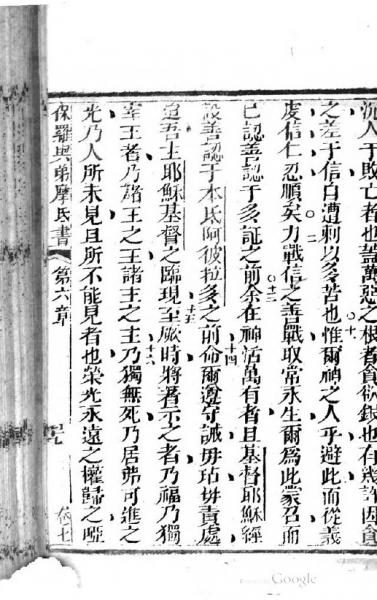 沉人于敗亡者也蓋萬惡之根者貪欲銀也有幾許因貪
之差于信自遭刺以多苦也惟爾神之人乎避此而從義
虔信仁忍順矣力戰信之善戰取常永生爾為此蒙召而
已認善認于多証之前余在神活萬有者且基督耶穌經
說善認于本氐阿彼拉多之前命爾遵守誡毋玷毋責處
迨吾主耶穌基督之臨現至厥時將著示之者乃福乃獨
宰王者乃諸王之王諸主之主乃獨無死乃居弗可進之
光乃人所未見且所不能見者也榮光永遠之權歸之啞
保羅與弟摩氐書 第六章
Google